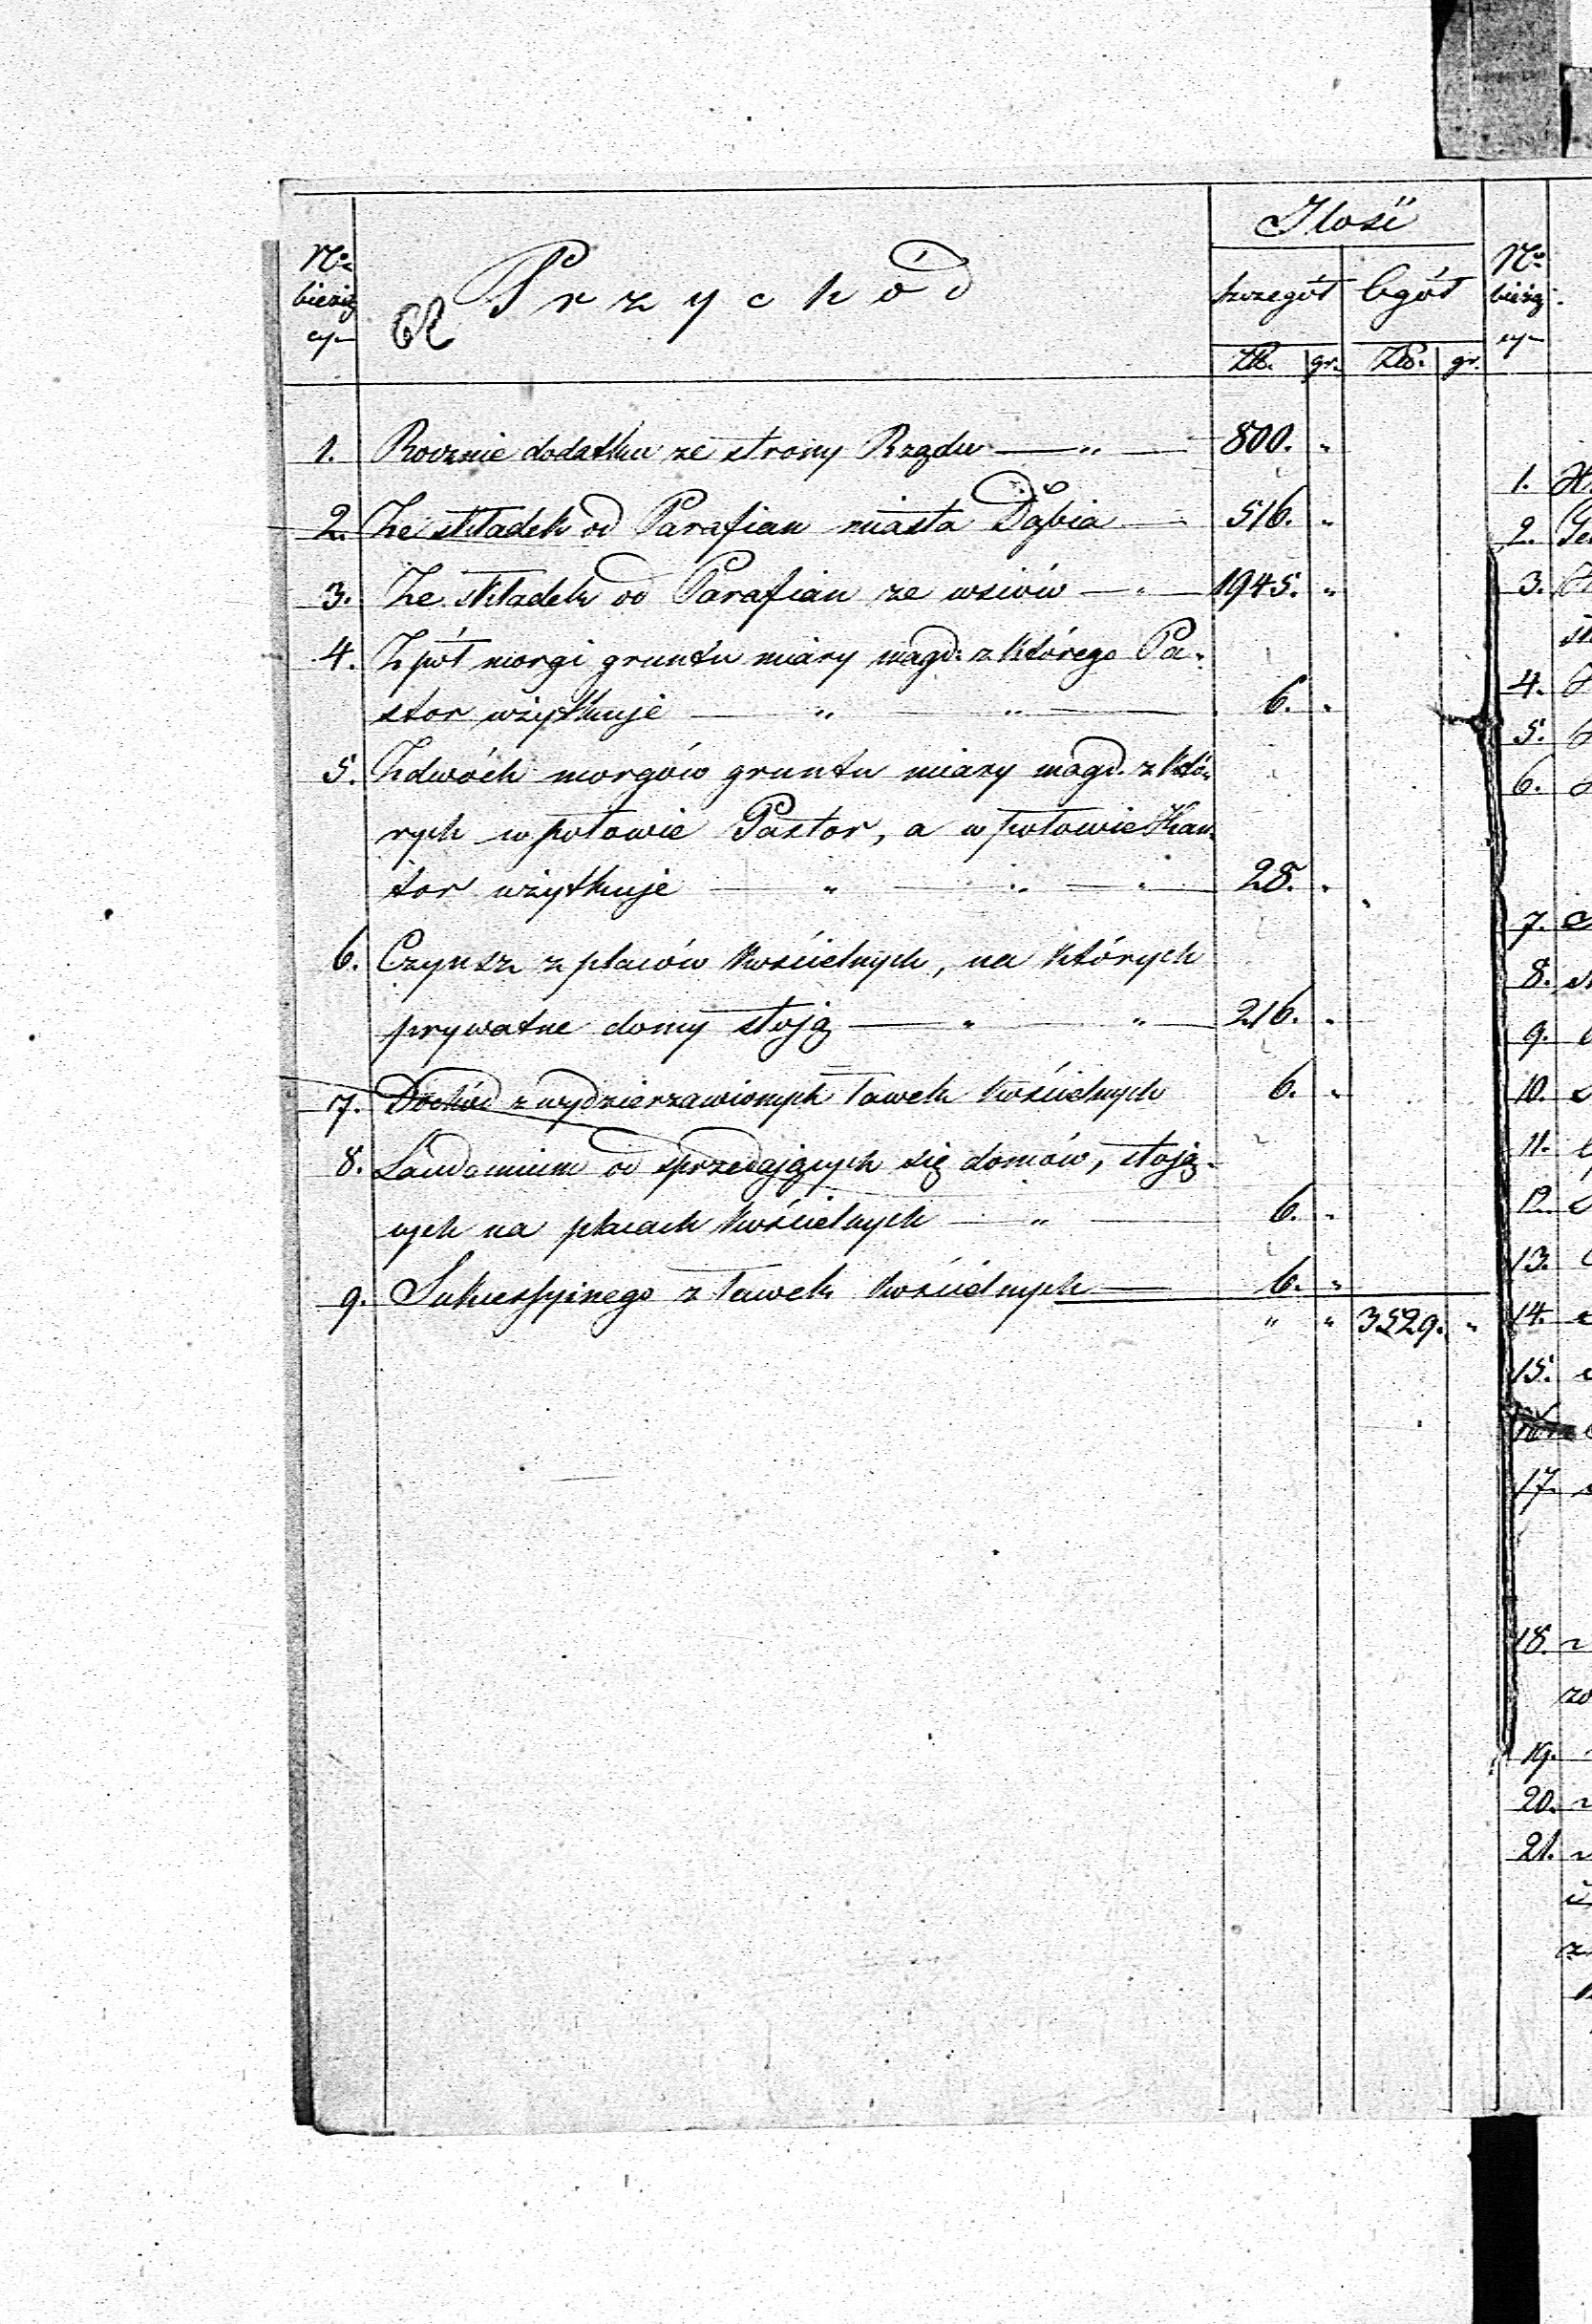 Ilość
No bieżący
Przychód
62
szczegół
Ogół
No bieżący
Złt. gr. Złt. gr.
1. Rocznie dodatku ze strony Rządu — „ — 800. „
2. Ze składek od Parafian miasta Dąbia — 516. „
3. Ze składek od Parafian ze wsiów — „ — 1945. „
4. Z pół morgi gruntu miary magd. z którego Pa-
stor użytkuje — „ — „ — 6. „
5. Z dwóch morgów gruntu miary magd. z któ-
rych w połowie Pastor, a w połowie Kan-
tor użytkuje — „ — „ — „ 28. „
6. Czynsz z placów kościelnych, na których
prywatne domy stoją — „ — „ — 216. „
7. Dochód z wydzierzawionych ławek kościelnych 6. „
8. Laudemium od sprzedających się domów, stoją-
cych na placach kościelnych — „ — 6. „
9. Sukcessyinego z ławek kościelnych — 6. „
„ „ 3529. „
1.
2.
3.
4.
5.
6.
7.
8.
9.
10.
11.
12.
13.
14.
15.
17.
18.
19.
20.
21.